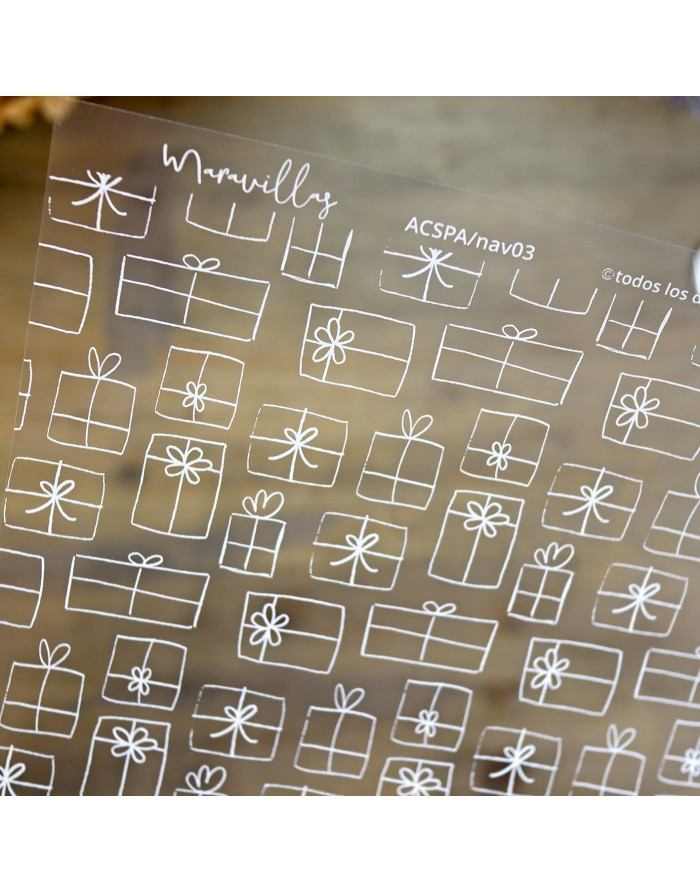 Maravillas
ACSPA/nav03
©todos los